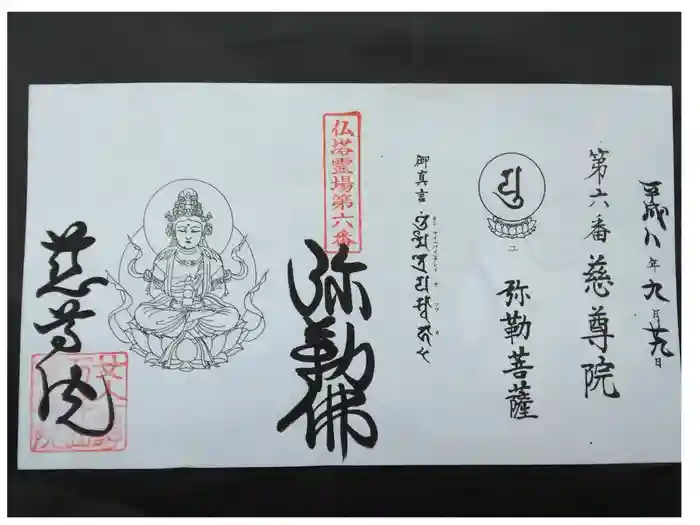 平成八年九月廿九日
第六番 慈尊院
ユ
弥勒菩薩
御真言
仏塔霊場第六番
弥勒佛
慈尊院